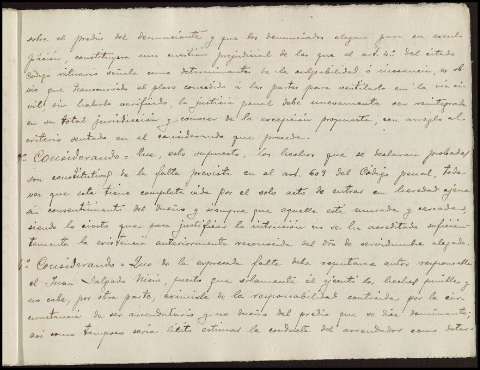 sobre el predio del denunciante y que los denunciados alegan para su exculpación, constituyen una cuestión prejudicial de las que el art. 4º del citado
Código rituario señala como determinantes de la culpabilidad o inocencia, es obvio que transcurrido el plazo concedido a las partes para ventilarla en la vía civil sin haberlo verificado, la justicia penal debe nuevamente ser reintegrada
en su total jurisdicción y conocer de la excepción propuesta, con arreglo al
criterio sentado en el considerando que precede.
Considerando = Que, esto supuesto, los hechos que se declaran probados
son constitutivos de la falta prevista en el art. 609 del Código penal, toda
vez que esta tiene completa vida por el solo acto de entrar en heredad ajena
sin consentimiento del dueño y siempre que aquella esté murada y cercada,
siendo lo cierto que para justificar la intrusión no se ha acreditado suficientemente la existencia anteriormente reconocida del derecho de servidumbre alegado.
4º Considerando = Que de la expresada falta debe reputarse autor responsable
al Juan Salgado Nieto, puesto que solamente él ejecutó los hechos punibles y
no cabe, por otra parte, eximirle de la responsabilidad contraída por la circunstancia de ser arrendatario y no dueño del predio que se dice dominante;
así como tampoco sería lícito estimar la conducta del arrendador como deter-